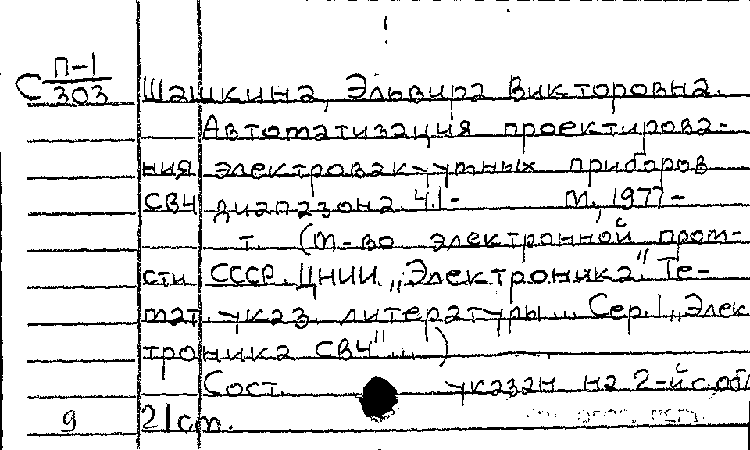 С П-1/303 Шашкина, Эльвира Викторовна.
Автоматизация проектирова-
ния электровакуумных приборов
СВЧ диапазона. Ч.1- М., 1977-
т. (М-во электронной пром-
сти СССР. ЦНИИ „Электроника". Те-
мат. указ. литературы... Сер.1 „Элек
троника СВЧ"...)
Сост. указан на 2-й
9 21 см.